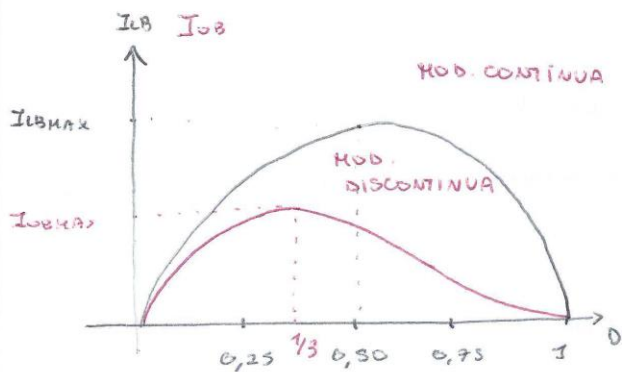 ILB IOB
MOD. CONTINUA
ILBMAX
MOD.
DISCONTINUA
IOBMAX
0,25 1/3 0,50 0,75 1 D